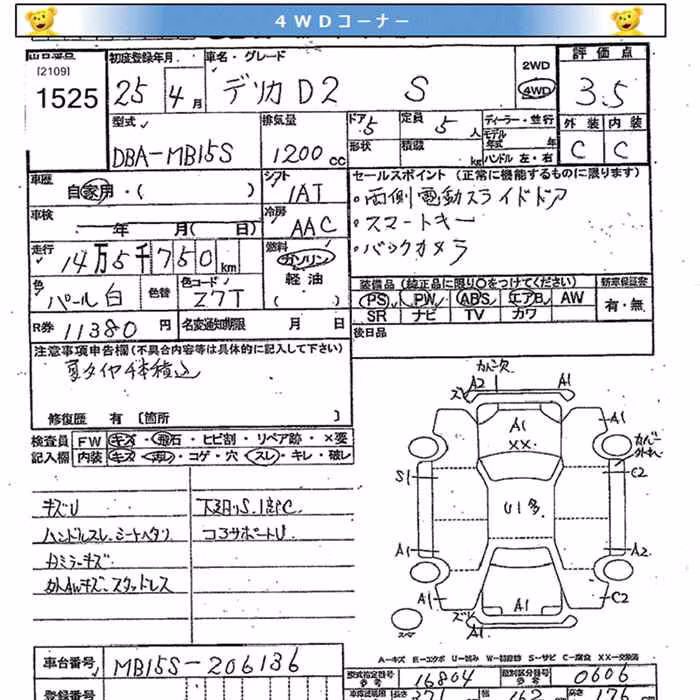 4WDコーナー
[2109]
1525
初度登録年月
25 4月
車名・グレード
デリカ D2 S
2WD
4WD
評価点
3.5
外装 内装
C C
型式
DBA-MB15S
排気量
1200cc
ドア 5
定員 5人
形状
積載 kg
ディーラー・並行
モデル年式 年
ハンドル 左・右
車歴
自家用・( )
シフト
IAT
セールスポイント (正常に機能するものに限ります)
・両側電動スライドドア
・スマートキー
・バックカメラ
車検
年 月( 日)
冷房
AAC
走行
14万5千750km
燃料
ガソリン
軽油
( )
色
パール白
色替
色コード
Z7T
装備品 (純正品に限り○をつけてください)
新車保証書
PS PW ABS エアB AW
有・無
SR ナビ TV カワ
R券 11380円
名変通知期限 月 日
後日品
注意事項申告欄(不具合内容等は具体的に記入して下さい)
夏タイヤ4本積込
修復歴 有 [箇所 ]
検査員
記入欄
FW キズ・飛石・ヒビ割・リペア跡・×要
内装 キズ・汚レ・コゲ・穴・スレ・キレ・破レ
キズU
ハンドルスレ、シートヘタリ
外AWキズ・スタッドレス
コアサポートU
A2 A1
A1
XX
A1
S1
C2
U1多
A1
A2
A1
A1
C2
A1
スペア
A-キズ E-エクボ U-凹み W-補修跡 S-サビ C-腐食 XX-交換済
車台番号
MB15S-206136
型式指定番号
参考
16804
類別区分番号
参考
0606
登録番号
長さ
幅
高さ